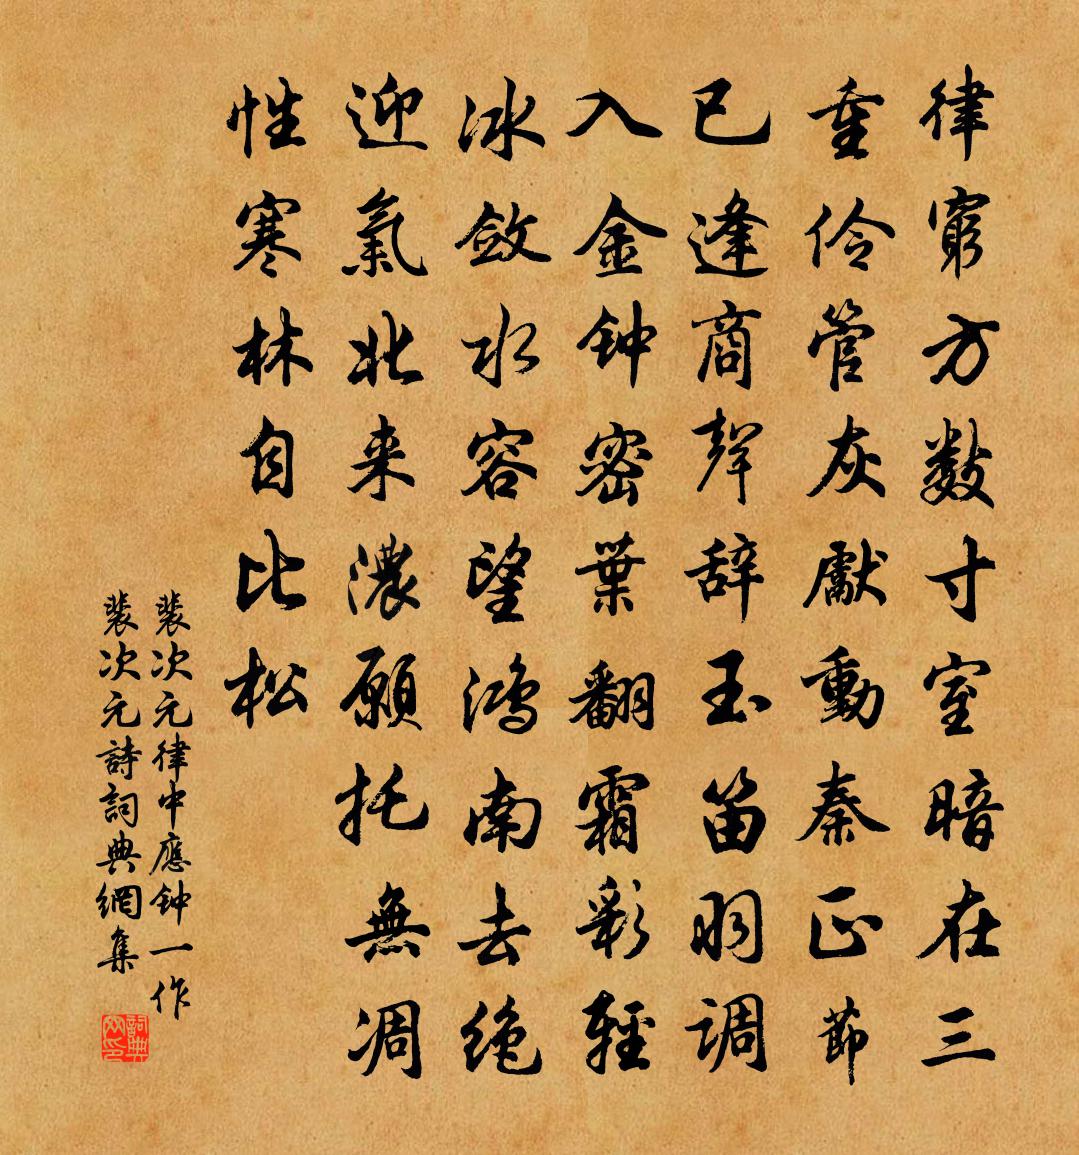 律窮方數寸室暗在三
重伶管灰獻動秦正節
已逢商聲辞玉笛羽调
入金钟密葉翻霜彩輕
冰斂水容望鸿南去绝
迎氣北来濃願托無凋
性寒林自比松
裴次元律中應钟一作
裴次元詩詞典網集
詞典網印